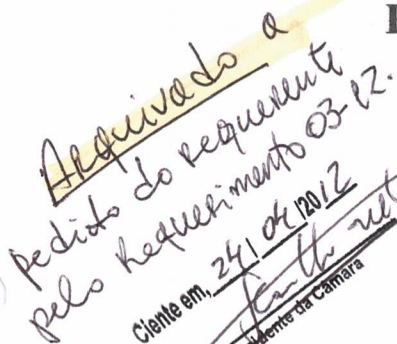 Arquivado a
pedido do requerente
pelo Requerimento 03-12.
Ciente em, 24/04/2012
da Câmara